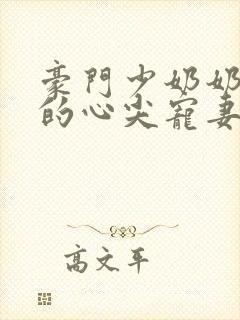 豪門少奶奶
的心尖寵妻
高文平